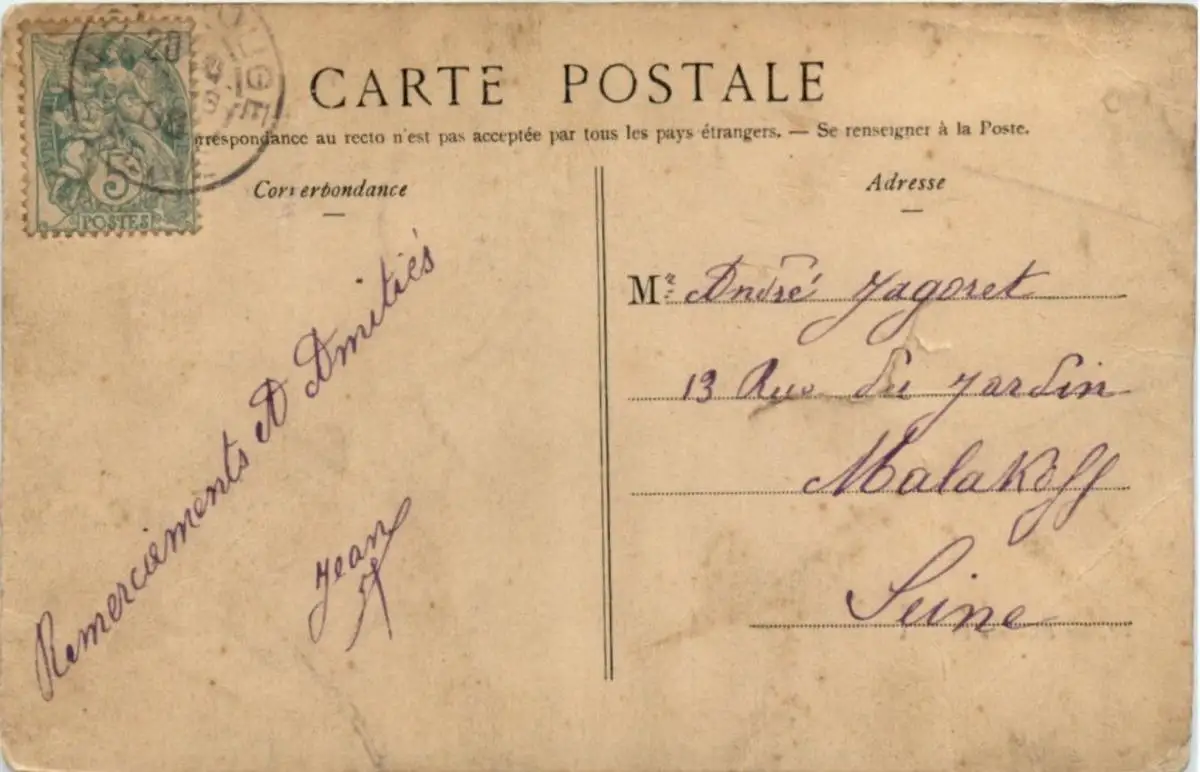 CARTE POSTALE
rrespondance au recto n'est pas acceptée par tous les pays étrangers. — Se renseigner à la Poste.
Correspondance
Remerciements et Amitiés
Jean
5
POSTES
Adresse
Mr André Jagoret
13 Rue du Jardin
Malakoff
Seine